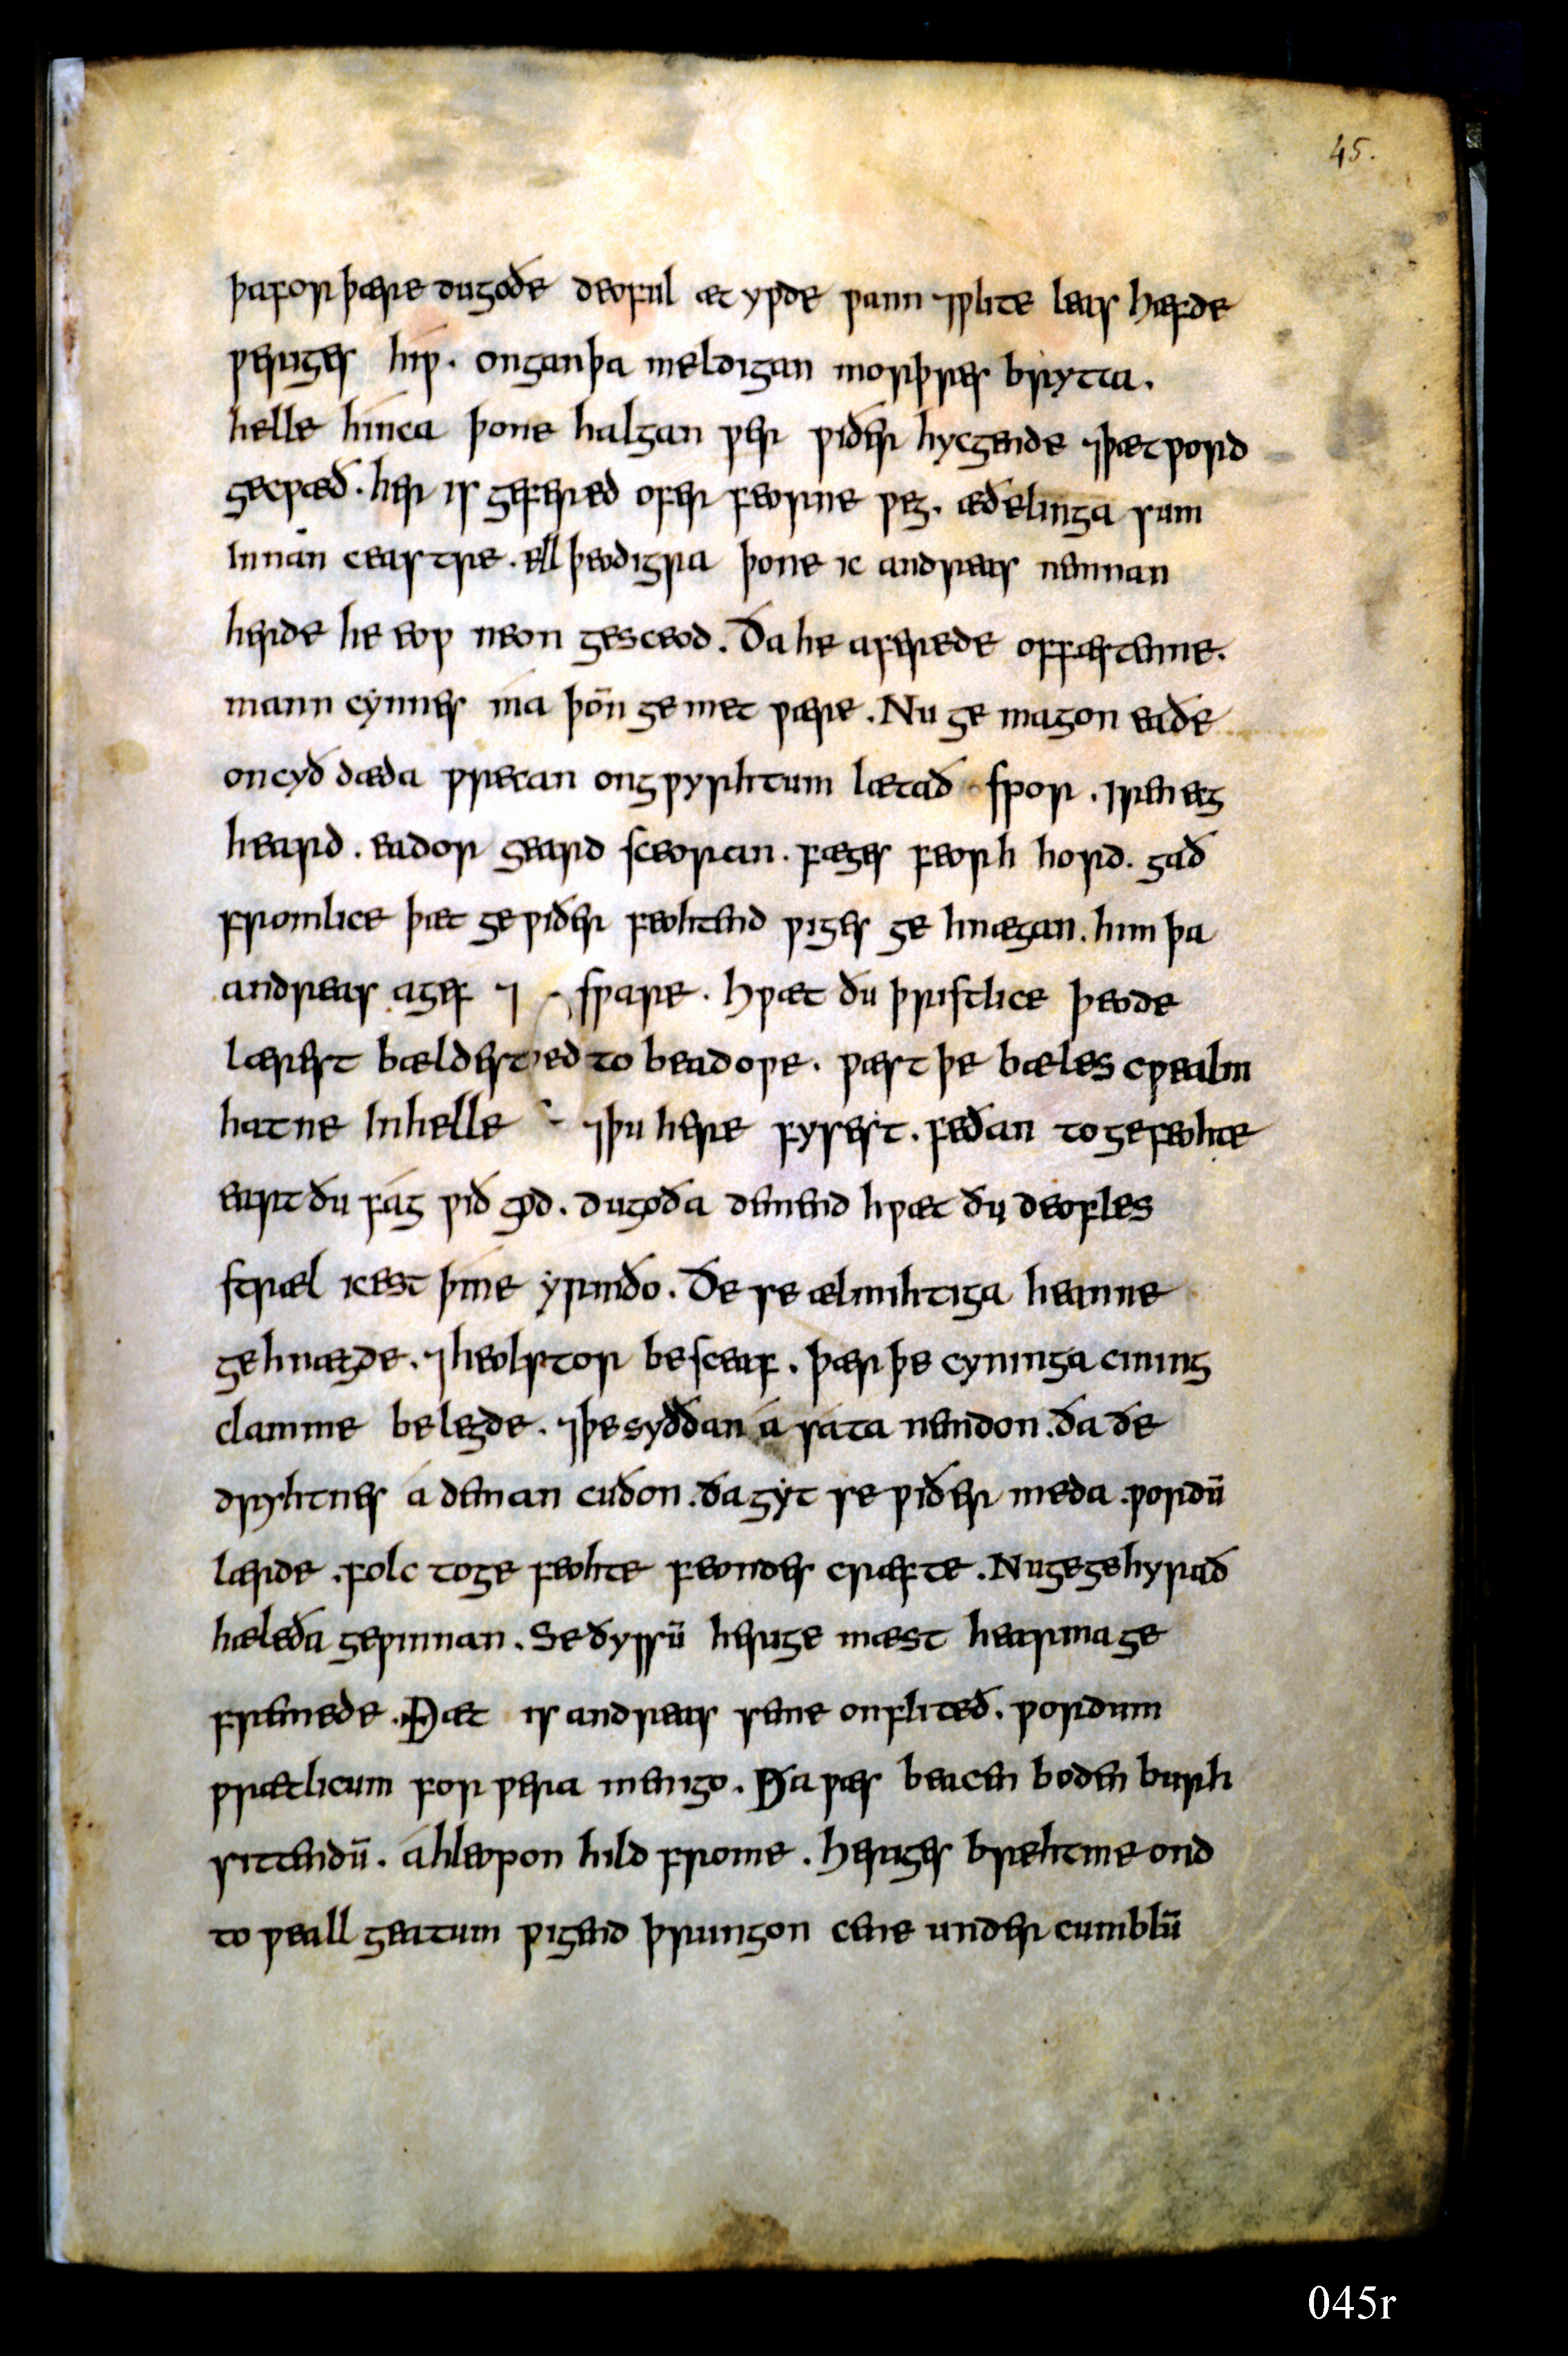 45.
þa for þære dugoðe deoful æt ywde wann ⁊ wlite leas hæfde
weriges hiw. ongan þa meldigan morþres brytta.
helle hinca þone halgan wer wiðer hycgende ⁊ þæt word
gecwæð. her is gefered ofer feorne weg. æðelinga sum
Innan ceastre. ell þeodigra þone ic andreas nemnan
herde he eow neon gesceod. ða he aferede of fæstenne.
mann cynnes má þoñ ge met wære. Nu ge magon eaðe
oncyð dæda wrecan on gwyrhtum lætað spor. Iren ecg
heard. eador geard sceoran. fæges feorh hord. gað
fromlice þæt ge wiðer feohtend wiges ge hnægan. him þa
andreas agef ⁊ sware. hwæt ðu þristlice þeode
lærest bældest ed to beadowe. wæst þe bæles cwealm
hatne In helle ⁊ þu here fysest. feðan to gefeohte
eart ðu fág wið gód. dugoða demend hwæt ðu deofles
stræl icest þine ẏrmðo. ðe se ælmihtiga heanne
gehnægde. ⁊ heolstor besceaf. þær þe cyninga cining
clamme belegde. ⁊ þe syððan á sata nemdon. ða ðe
dryhtnes á deman cuðon. ða gẏt se wiðer meda. wordū
lærde. folc to ge feohte feondes cræfte. Nu ge gehyrað
hæleða gewinnan. Se ðyssū herige mæst hearma ge
fremede. Ðæt is andreas seme on fliteð. wordum
wrætlicum for wera mengo. Ða wæs beacen boden burh
sittendū. áhleopon hild frome. heriges brehtme ond
to weall geatum wigend þrungon cene under cumblū
045r